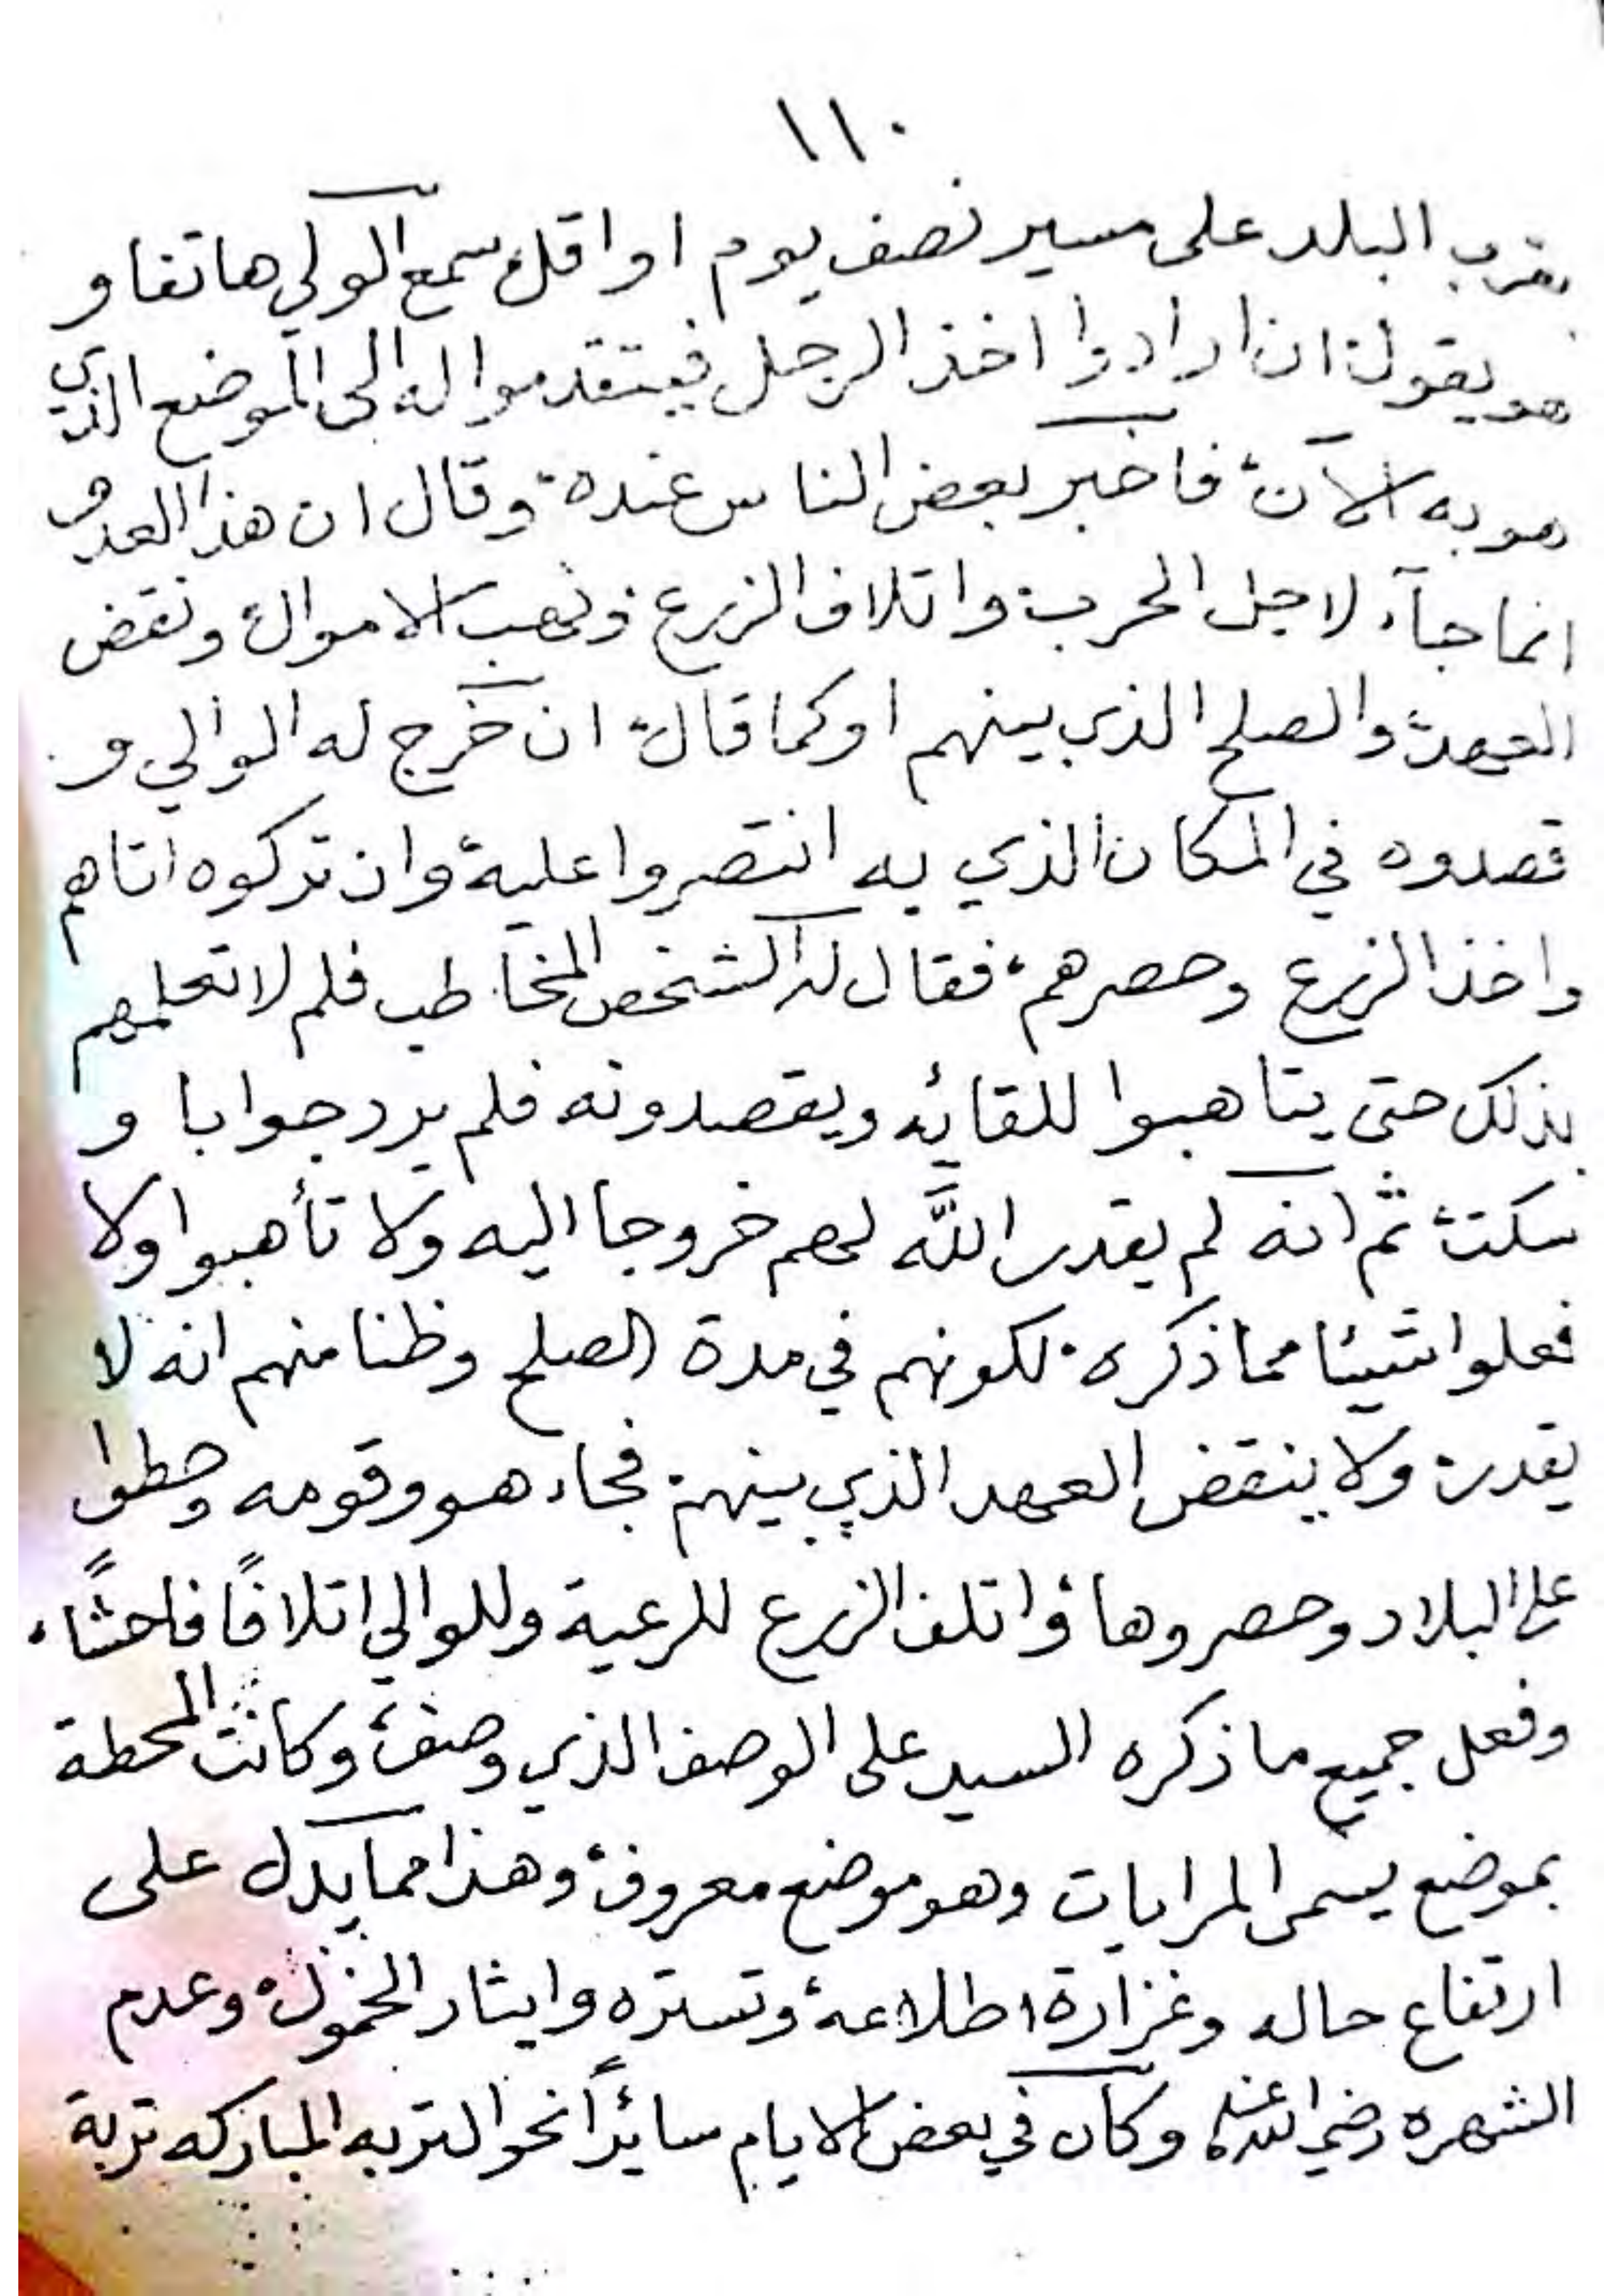 ١١٠
بقرب البلد على مسير نصف يوم او اقل سمع الولي هاتفا و
هو يقول ان ارادوا اخذ الرجل فيتقدموا له الى الموضع الذي
هو به الآن فاخبر بعض الناس عنده وقال ان هذا العدو
انما جآء لاجل الحرب واتلاف الزرع ونهب الاموال ونقض
العهد والصلح الذي بينهم او كما قال ان خرج له الوالي و
قصدوه في المكان الذي به انتصروا عليه وان تركوه اتاهم
واخذ الزرع وحصرهم فقال له الشخص المخاطب فلم لا تعلمهم
بذلك حتى يتاهبوا للقائه ويقصدونه فلم يرد جوابا و
سكت ثم انه لم يقدر اللَّه لهم خروجا اليه ولا تأهبوا ولا
فعلوا شيئا مما ذكره لكونهم في مدة الصلح وظنا منهم انه لا
يقدر ولا ينقض العهد الذي بينهم فجاء هو وقومه وحطوا
على البلاد وحصروها واتلف الزرع للرعية وللوالي اتلافًا فاحشًا
وفعل جميع ما ذكره السيد على الوصف الذي وصف وكانت المحطة
بموضع يسمى المرابات وهو موضع معروف وهذا مما يدل على
ارتفاع حاله وغزارة اطلاعه وتستره وايثار الخمول وعدم
الشهره رضي الله عنه وكان في بعض الايام سائرًا نحو التربه المباركه تربة